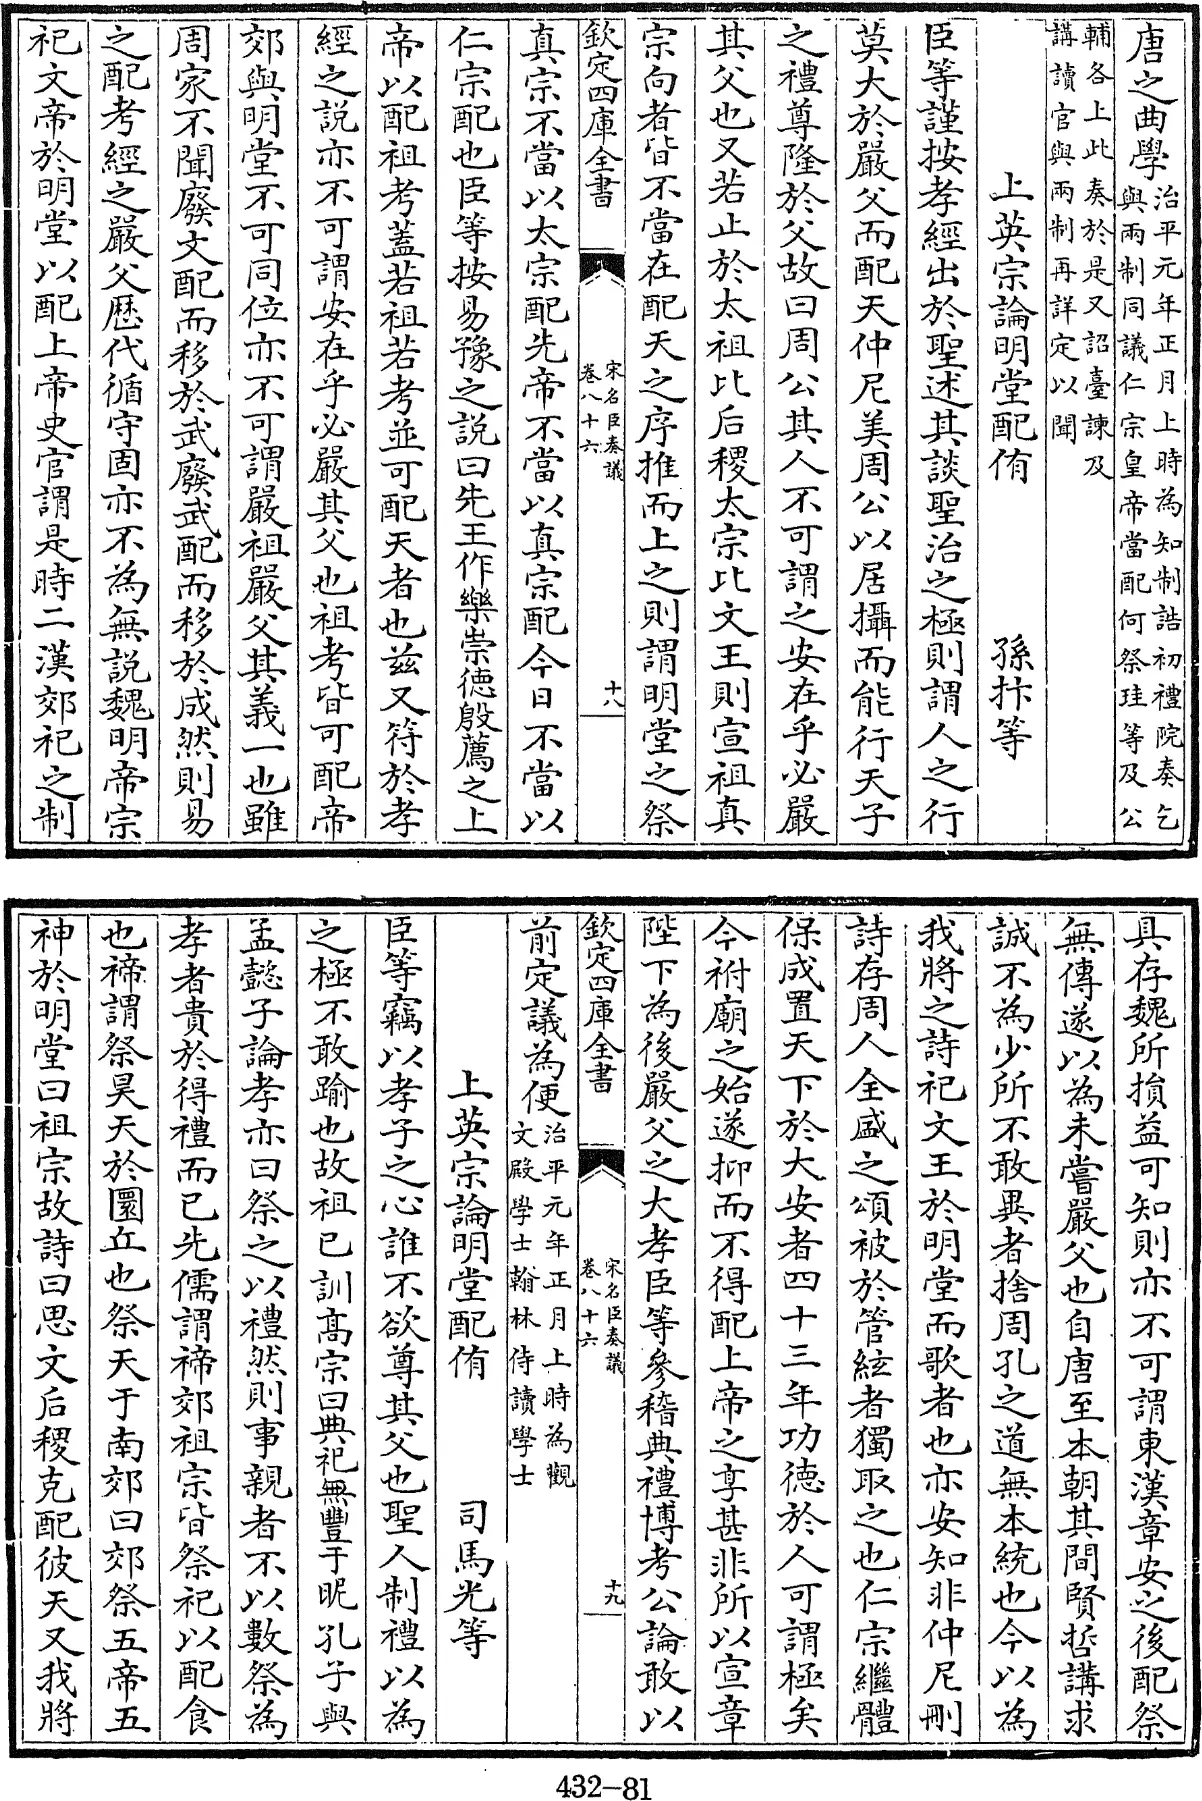 唐之曲學治平元年正月上時為知制誥初禮院奏乞
與兩制同議仁宗皇帝當配何祭珪等及公
輔各上此奏於是又詔臺諫及
講讀官與兩制再詳定以聞
上英宗論明堂配侑　孫抃等
臣等謹按孝經出於聖述其談聖治之極則謂人之行
莫大於嚴父而配天仲尼美周公以居攝而能行天子
之禮尊隆於父故曰周公其人不可謂之安在乎必嚴
其父也又若止於太祖比后稷太宗比文王則宣祖真
宗向者皆不當在配天之序推而上之則謂明堂之祭
欽定四庫全書　宋名臣奏議
卷八十六　十八
真宗不當以太宗配先帝不當以真宗配今日不當以
仁宗配也臣等按易豫之說曰先王作樂崇德殷薦之上
帝以配祖考蓋若祖若考並可配天者也茲又符於孝
經之說亦不可謂安在乎必嚴其父也祖考皆可配帝
郊與明堂不可同位亦不可謂嚴祖嚴父其義一也雖
周家不聞廢文配而移於武廢武配而移於成然則易
之配考經之嚴父歷代循守固亦不為無說魏明帝宗
祀文帝於明堂以配上帝史官謂是時二漢郊祀之制
具存魏所損益可知則亦不可謂東漢章安之後配祭
無傳遂以為未嘗嚴父也自唐至本朝其間賢哲講求
誠不為少所不敢異者捨周孔之道無本統也今以為
我將之詩祀文王於明堂而歌者也亦安知非仲尼刪
詩存周人全盛之頌被於管絃者獨取之也仁宗繼體
保成置天下於大安者四十三年功德於人可謂極矣
今祔廟之始遂抑而不得配上帝之享甚非所以宣章
陛下為後嚴父之大孝臣等參稽典禮博考公論敢以
欽定四庫全書　宋名臣奏議
卷八十六　十九
前定議為便治平元年正月上時為觀
文殿學士翰林侍讀學士
上英宗論明堂配侑　司馬光等
臣等竊以孝子之心誰不欲尊其父也聖人制禮以為
之極不敢踰也故祖已訓高宗曰典祀無豐于昵孔子與
孟懿子論孝亦曰祭之以禮然則事親者不以數祭為
孝者貴於得禮而已先儒謂禘郊祖宗皆祭祀以配食
也禘謂祭昊天於圜丘也祭天于南郊曰郊祭五帝五
神於明堂曰祖宗故詩曰思文后稷克配彼天又我將
432-81